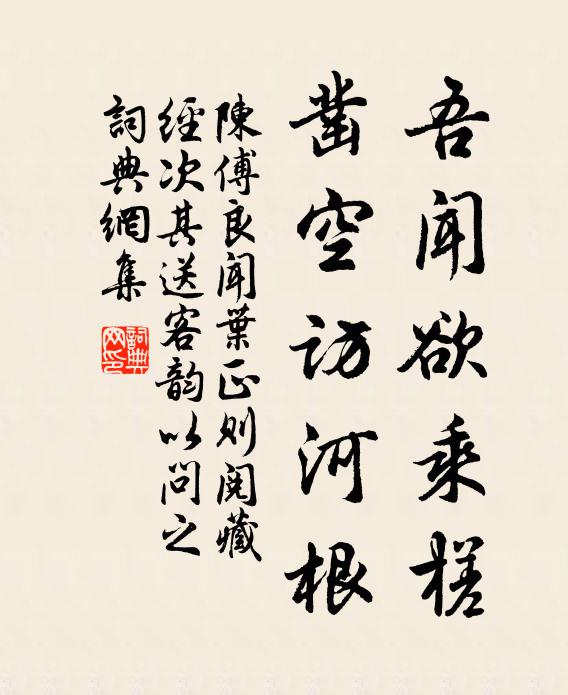 吾聞欲乘槎
鑿空訪河根
陳傅良聞葉正則閱藏
經次其送客韵以問之
詞典網集
詞典网印